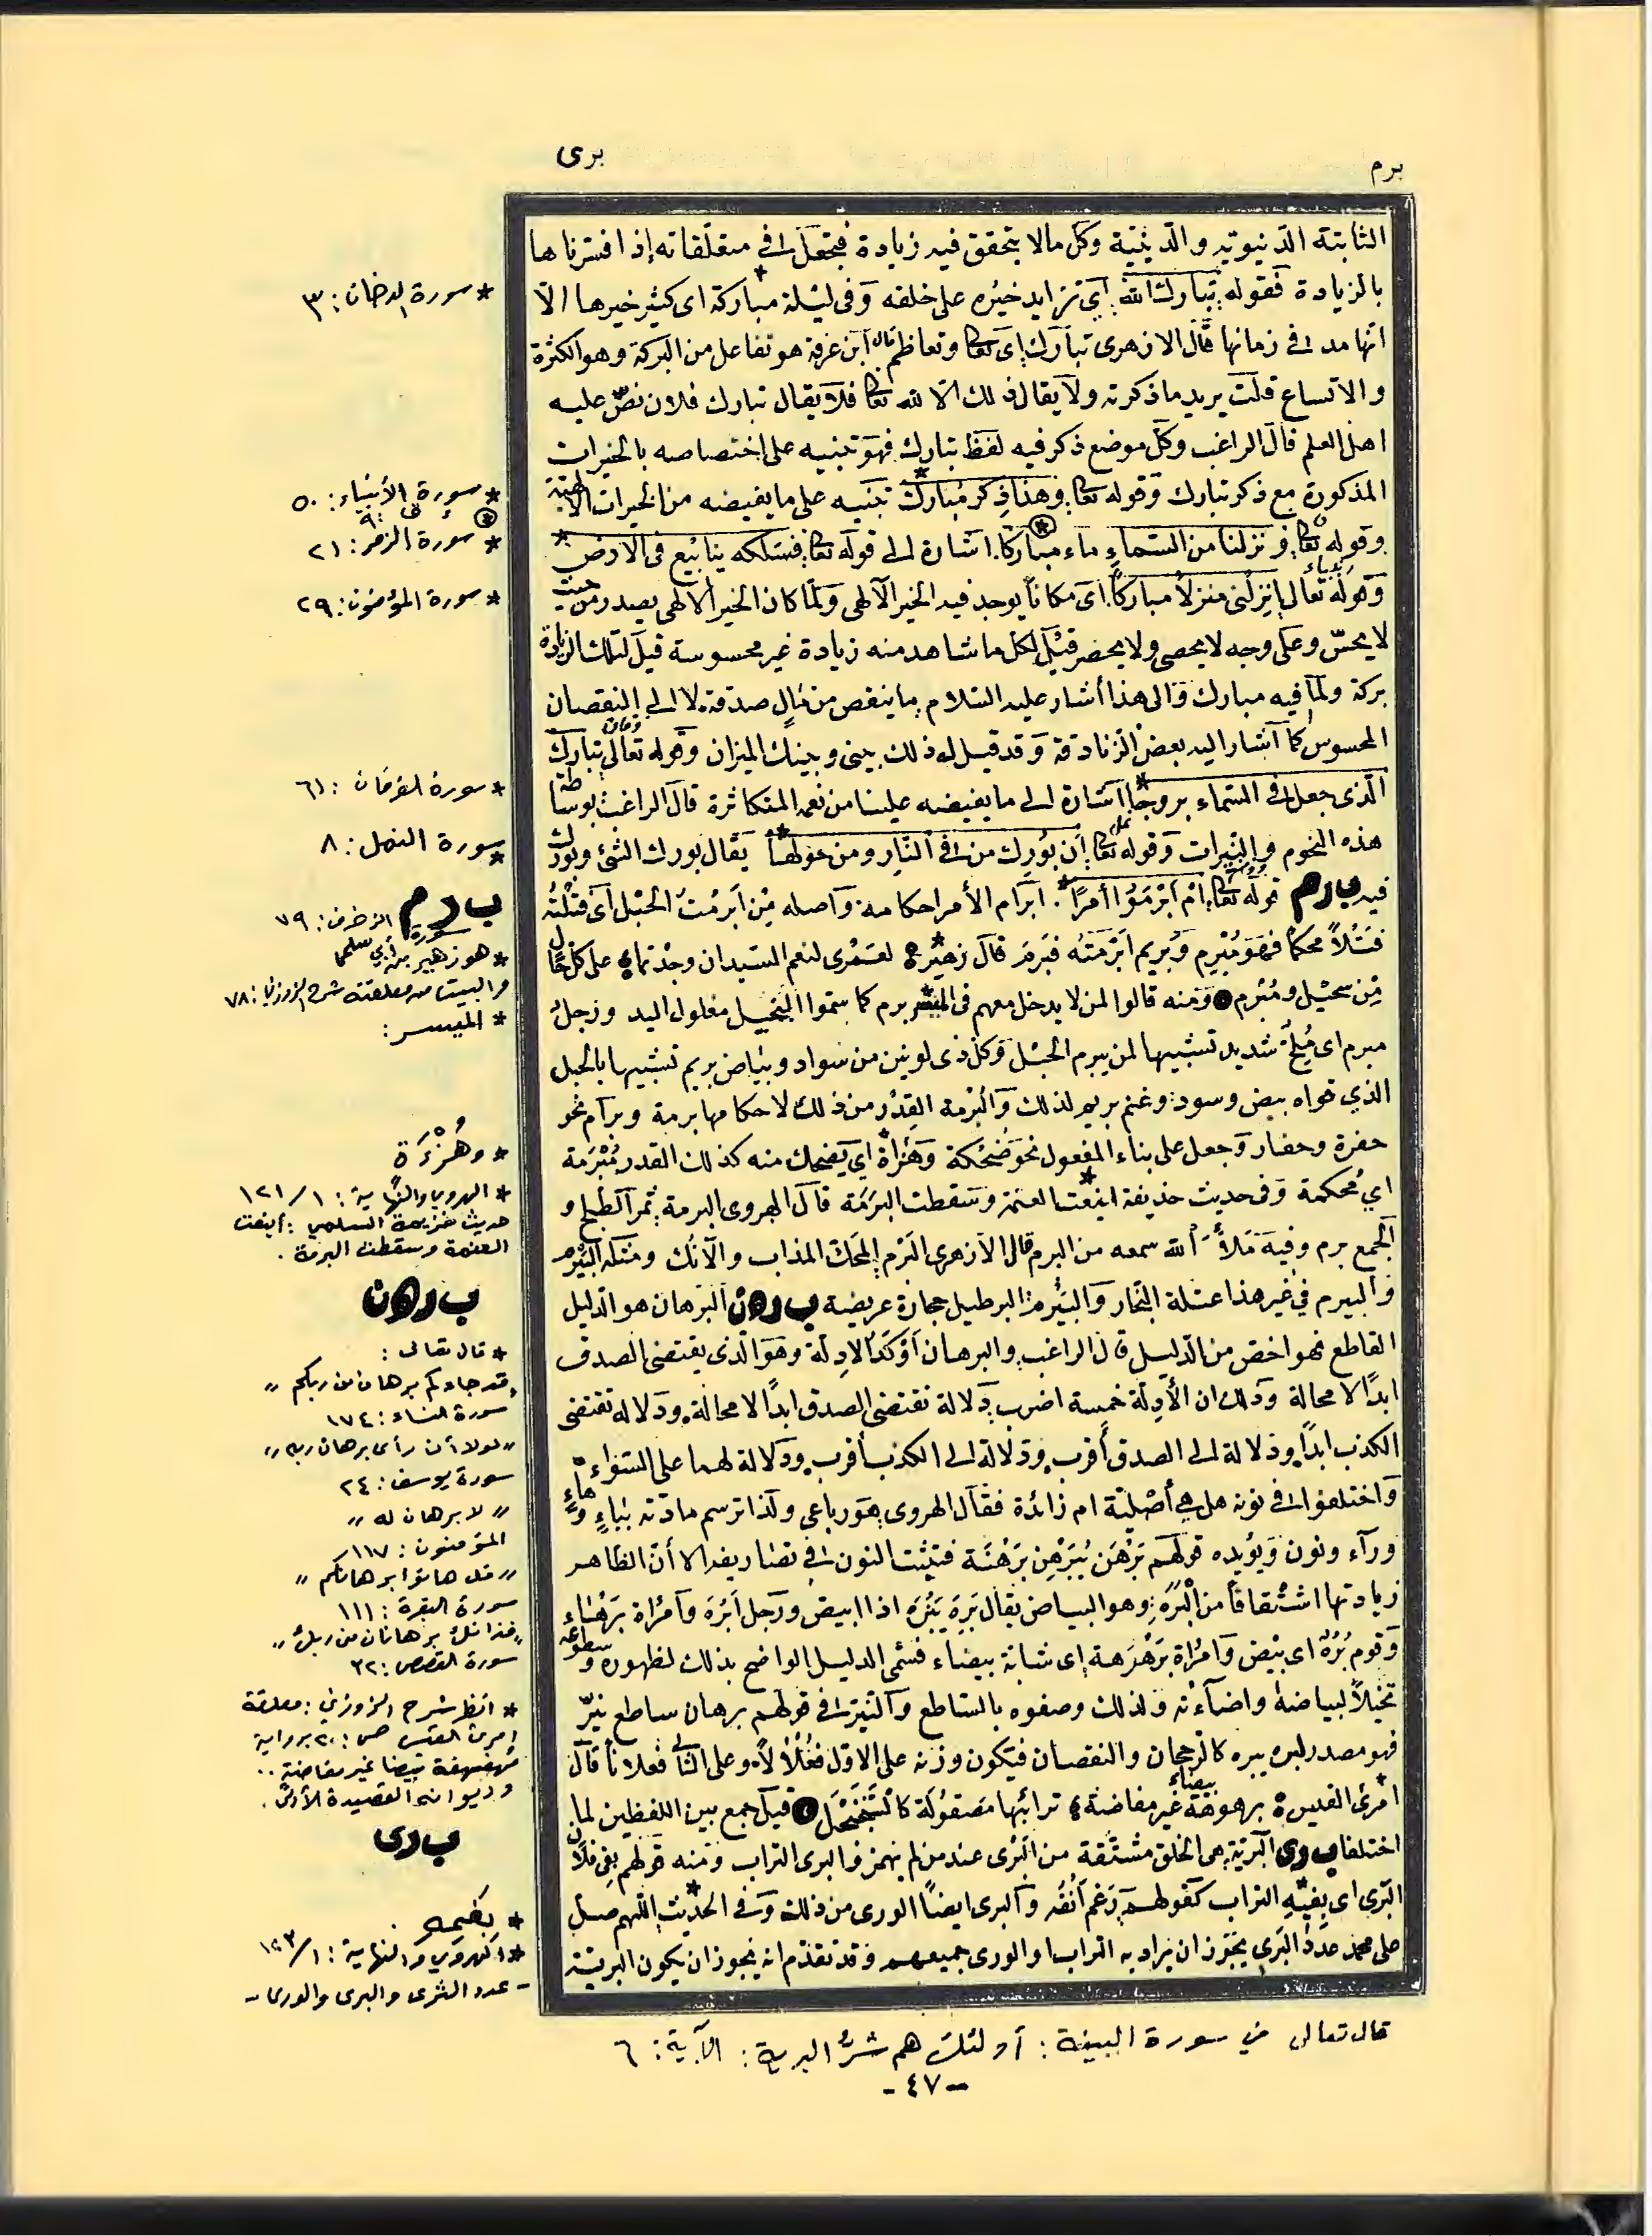 برم
برى
الثابتة الدنيوية والدينية وكل مالا يتحقق فيه زيادة فيجعل في متعلقاته إذا فسرناها
بالزيادة فقوله تبارك الله أي تزايد خيره على خلقه وفي ليلة مباركة أي كثير خيرها الا
قال الازهري تبارك اي تعالى وتعاظم قال ابن عرفة هو تفاعل من البركة وهو الكثرة
والاتساع قلت يريد ما ذكرته ولا يقال ذلك الا لله تعالى فلا يقال تبارك فلان نص عليه
اهل العلم قال الراغب وكل موضع ذكر فيه لفظ تبارك فهو تنبيه على اختصاصه بالخيرات
المذكورة مع ذكر تبارك وقوله تعالى وهذا ذكر مبارك تنبيه على ما يفيضه من الخيرات الالهية
وقوله تعالى ونزلنا من السماء ماء مباركا اشارة الى قوله تعالى فسلكه ينابيع في الارض
وقوله تعالى انزلني منزلا مباركا اى مكانا يوجد فيه الخير الالهي ولما كان الخير الالهي يصدر من حيث
لا يحس وعلى وجه لا يحصى ولا يحصر قيل لكل ما شاهد منه زيادة غير محسوسة قيل لتلك الزيادة
بركة ولما فيه مبارك والى هذا أشار عليه السلام ما ينقص من مال صدقة لا الى النقصان
المحسوس كما اشار اليه بعض الزنادقة وقد قيل له ذلك بيني وبينك الميزان وقوله تعالى تبارك
الذى جعل في السماء بروجا اشارة الى ما يفيضه علينا من نعمه المتكاثرة قال الراغب بوساطة
هذه النجوم والنيرات وقوله تعالى أن بورك من في النار ومن حولها يقال بورك الشئ وبورك
فيه ب ر م قوله تعالى أم أبرموا أمرا ابرام الأمر احكامه وأصله من أبرمت الحبل أى فتلته
فتلا محكما فهو مبرم وبريم ابرمته فبرم قال زهير لعمرى لنعم السيدان وجدتما على كل حال
من سحيل ومبرم ومنه قالوا لمن لا يدخل معهم في الميسر برم كما سموا البخيل مغلول اليد ورجل
مبرم اى ملح شديد تشبيها لمن يبرم الحبل وكل ذى لونين من سواد وبياض بريم تشبيها بالحبل
الذي قواه بيض وسود وغنم بريم لذلك والبرمة القدر من ذلك لاحكامها برمة وبرام نحو
حفرة وحفار وجعل على بناء المفعول نحو ضحكة وهزأة اي يضحك منه كذلك القدر مبرمة
اي محكمة وفى حديث حذيفة اينعت العنمة وسقطت البرمة قال الهروى البرمة ثمر الطلح و
الجمع برم وفيه ملأ الله سمعه من البرم قال الازهرى البرم الكحل المذاب والآنك ومثله البيرم
والبيرم في غير هذا عتلة النجار والبيرم البرطيل حجارة عريضة ب ر ه ن البرهان هو الدليل
القاطع فهو اخص من الدليل قال الراغب والبرهان أوكد الادلة وهو الذى يقتضى الصدق
ابدا لا محالة وذلك ان الأدلة خمسة اضرب دلالة تقتضى الصدق ابدا لا محالة ودلالة تقتضى
الكذب ابدا ودلالة الى الصدق أقرب ودلالة الى الكذب أقرب ودلالة لهما على السواء
واختلفوا في نونه هل هي أصلية ام زائدة فقال الهروى هو رباعى ولذا ترسم مادته بباء وهاء
وراء ونون ويؤيده قولهم برهن يبرهن برهنة فتثبت النون في تصاريفه الا أن الظاهر
زيادتها اشتقاقا من البره وهو البياض يقال بره يبره اذا ابيض ورجل أبره وامرأة برهاء
وقوم بره اى بيض وامرأة برهرهة اى شابة بيضاء فسمى الدليل الواضح بذلك لظهوره وسطوعه
تخيلا لبياضه واضاءته ولذلك وصفوه بالساطع والنير في قولهم برهان ساطع نير
فهو مصدر لبره يبره كالرجحان والنقصان فيكون وزنه على الاول فعلالا وعلى الثانى فعلانا قال
امرئ القيس برهرهة بيضاء غير مفاضة ترائبها مصقولة كالسجنجل قيل جمع بين اللفظين لما
اختلفا ب ر ى البرية هى الخلق مشتقة من البرى عند من لم يهمز والبرى التراب ومنه قولهم بفي فلان
البرى اى بفيه التراب كقولهم رغم أنفه والبرى ايضا الورى من ذلك وفي الحديث اللهم صل
على محمد عدد البرى يجوز ان يراد به التراب او الورى جميعهم وقد تقدم انه يجوز ان يكون البرية
* سورة الدخان: ٣
* سورة الأنبياء: ٥٠
ق ٩
* سورة الزمر: ٢١
* سورة المؤمنون: ٢٩
* سورة الفرقان: ٦١
* سورة النمل: ٨
ب ر م
سورة الزخرف: ٧٩
* هو زهير بن أبي سلمى
والبيت من معلقته شرح الزوزني: ٧٨
* الميسر:
* وهُزْءَة
* الهروي والنهاية: ١/ ١٢١
حديث خزيمة السلمي: أينعت
العنمة وسقطت البرمة.
ب ر ه ن
* قال تعالى:
"قد جاءكم برهان من ربكم"
سورة النساء: ١٧٤
"لولا أن رأى برهان ربه"
سورة يوسف: ٢٤
"لا برهان له"
المؤمنون: ١١٧
"قل هاتوا برهانكم"
سورة البقرة: ١١١
"فذانك برهانان من ربك"
سورة القصص: ٣٢
* انظر شرح الزوزني: معلقة
امرئ القيس ص: ٢٠ برواية
مهفهفة بيضاء غير مفاضة..
وديوانه القصيدة الأولى.
ب ر ى
* بفيه
* الهروي والنهاية: ١/ ١٢٣
- عدد الثرى والبرى والورى -
قال تعالى في سورة البينة: أولئك هم شرُّ البرية: الآية: ٦
- ٤٧ -